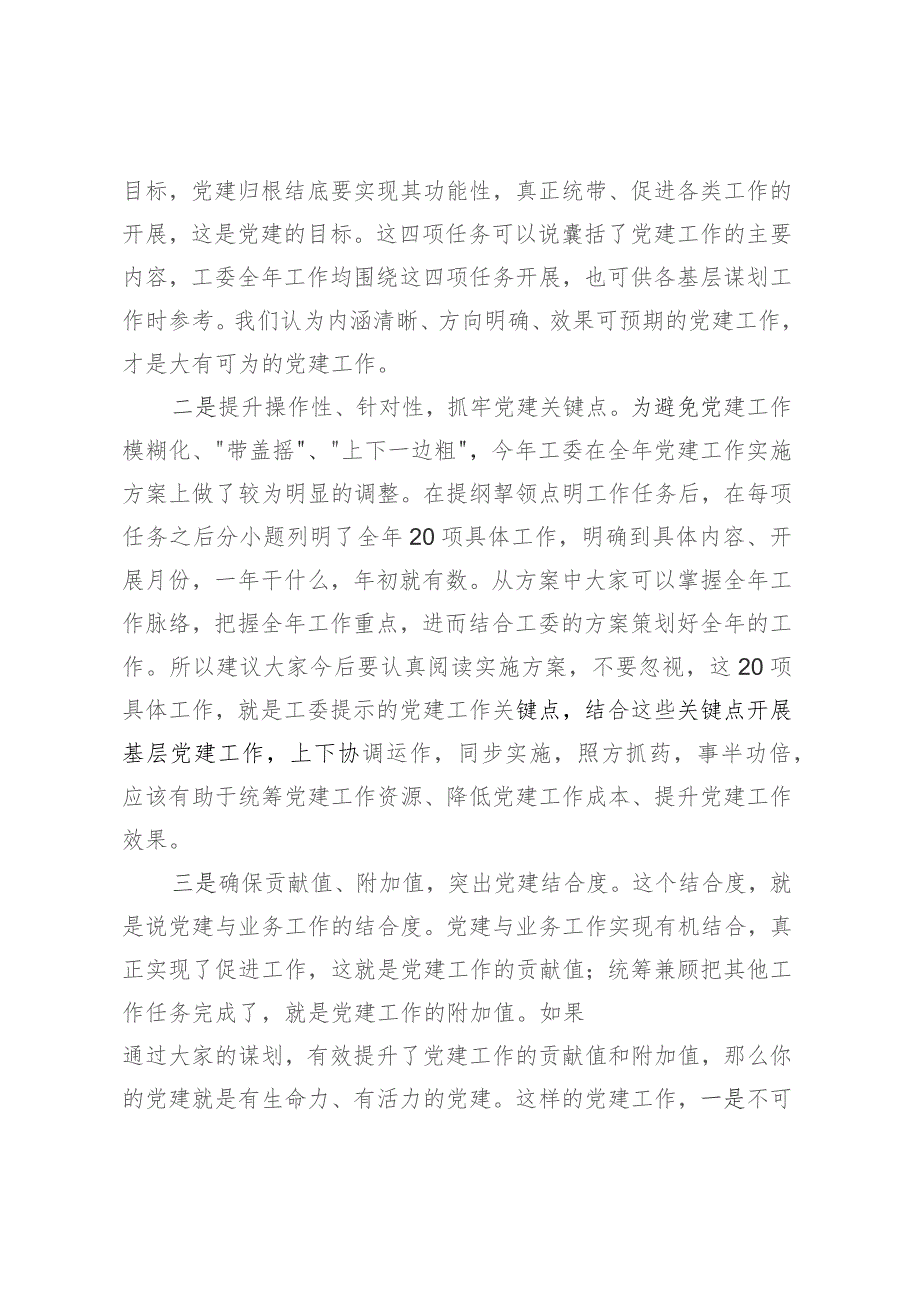 目标，党建归根结底要实现其功能性，真正统带、促进各类工作的
开展，这是党建的目标。这四项任务可以说囊括了党建工作的主要
内容，工委全年工作均围绕这四项任务开展，也可供各基层谋划工
作时参考。我们认为内涵清晰、方向明确、效果可预期的党建工作，
才是大有可为的党建工作。
二是提升操作性、针对性，抓牢党建关键点。为避免党建工作
模糊化、"带盖摇"、"上下一边粗"，今年工委在全年党建工作实施
方案上做了较为明显的调整。在提纲挈领点明工作任务后，在每项
任务之后分小题列明了全年 20 项具体工作，明确到具体内容、开
展月份，一年干什么，年初就有数。从方案中大家可以掌握全年工
作脉络，把握全年工作重点，进而结合工委的方案策划好全年的工
作。所以建议大家今后要认真阅读实施方案，不要忽视，这 20 项
具体工作，就是工委提示的党建工作关键点，结合这些关键点开展
基层党建工作，上下协调运作，同步实施，照方抓药，事半功倍，
应该有助于统筹党建工作资源、降低党建工作成本、提升党建工作
效果。
三是确保贡献值、附加值，突出党建结合度。这个结合度，就
是说党建与业务工作的结合度。党建与业务工作实现有机结合，真
正实现了促进工作，这就是党建工作的贡献值；统筹兼顾把其他工
作任务完成了，就是党建工作的附加值。如果
通过大家的谋划，有效提升了党建工作的贡献值和附加值，那么你
的党建就是有生命力、有活力的党建。这样的党建工作，一是不可